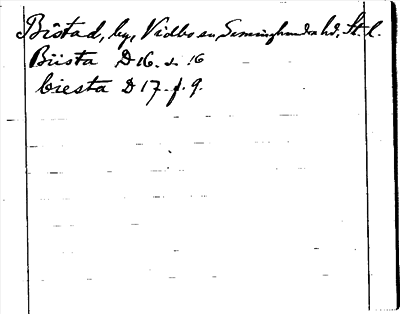 Bistad, by, Vidbo sn, Seminghundra hd, St. l.
Biista D 16. s. 16
biesta D 17. f. 9.